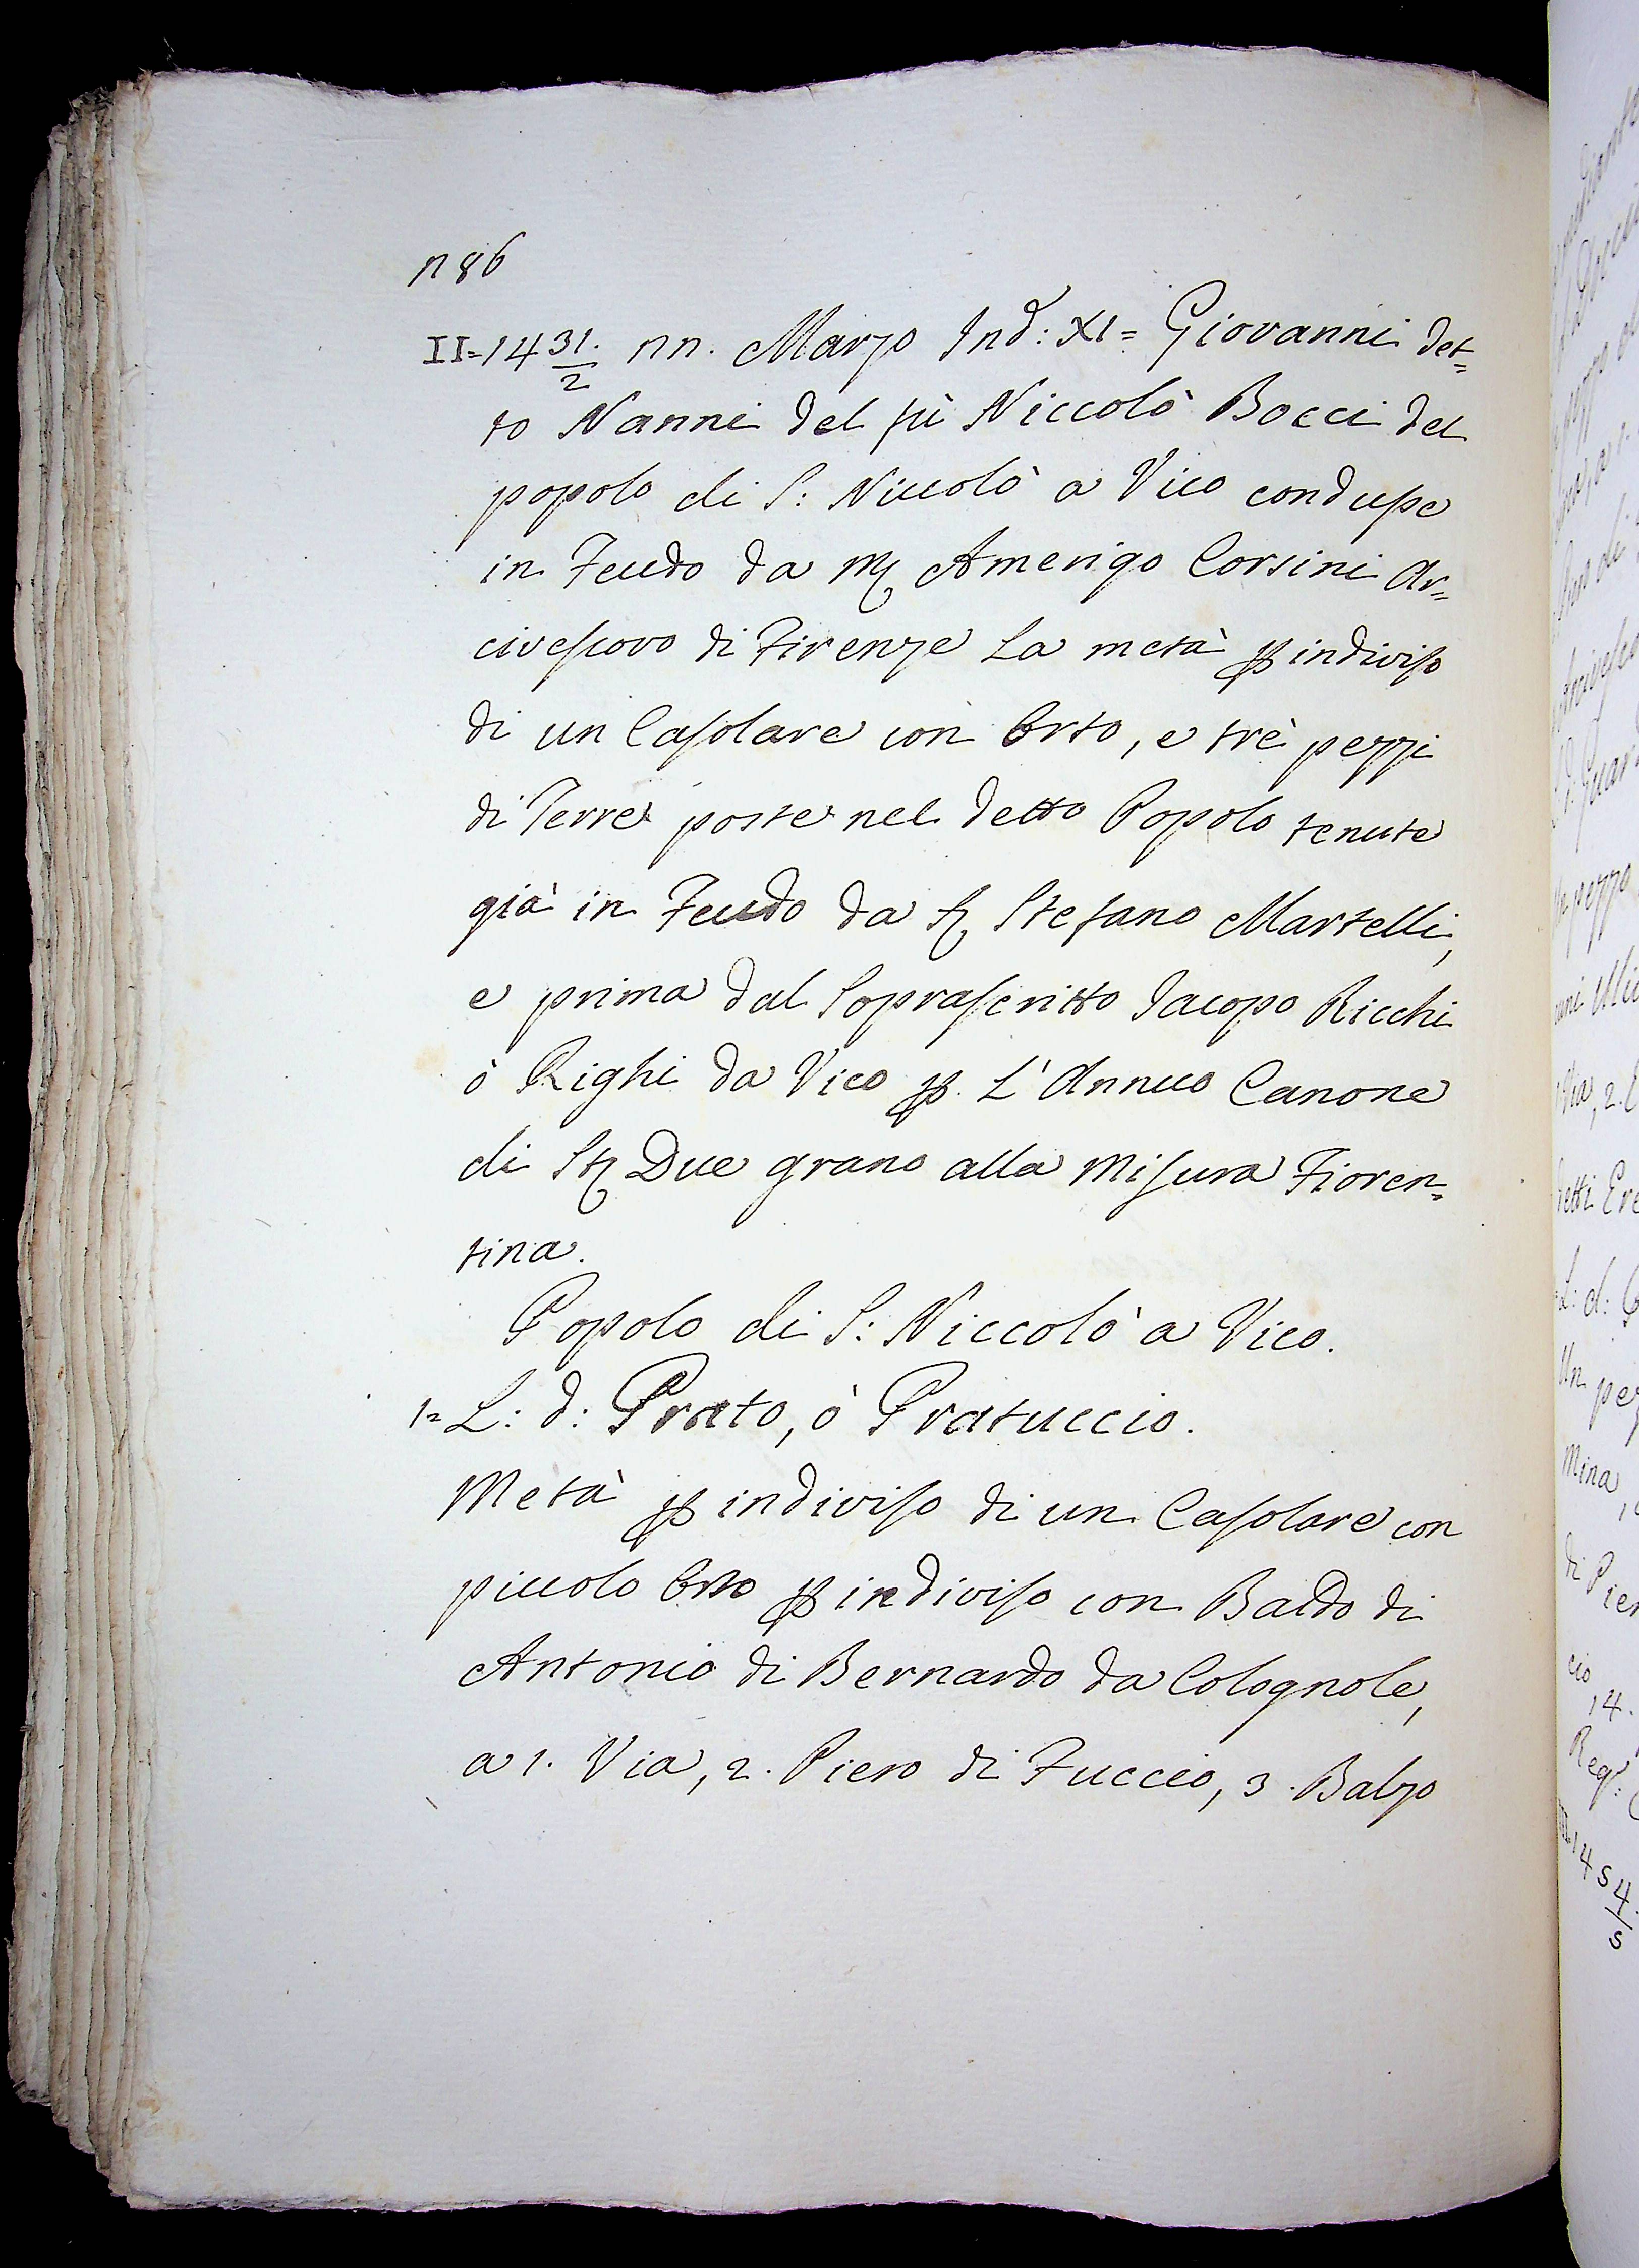 n 86
II=1431./2 nn. Marzo Ind: XI= Giovanni det=
to Nanni del fù Niccolò Bocci del
popolo di S: Niccolò a Vico condusse
in Feudo da M Amerigo Corsini Ar=
civescovo di Firenze La metà p indiviso
di un Casolare con Orto, e trè pezzi
di Terre poste nel detto Popolo tenute
già in Feudo da S Stefano Martelli,
e prima dal Soprascritto Jacopo Ricchi
ò Righi da Vico p. L'Annuo Canone
di St Due grano alla Misura Fioren=
tina.
Popolo di S: Niccolò a Vico.
1= L: d: Prato, ò Pratuccio.
Metà p indiviso di un Casolare con
piccolo Orto p indiviso con Baldo di
Antonio di Bernardo da Colognole,
a 1. Via, 2. Piero di Fuccio, 3. Balzo